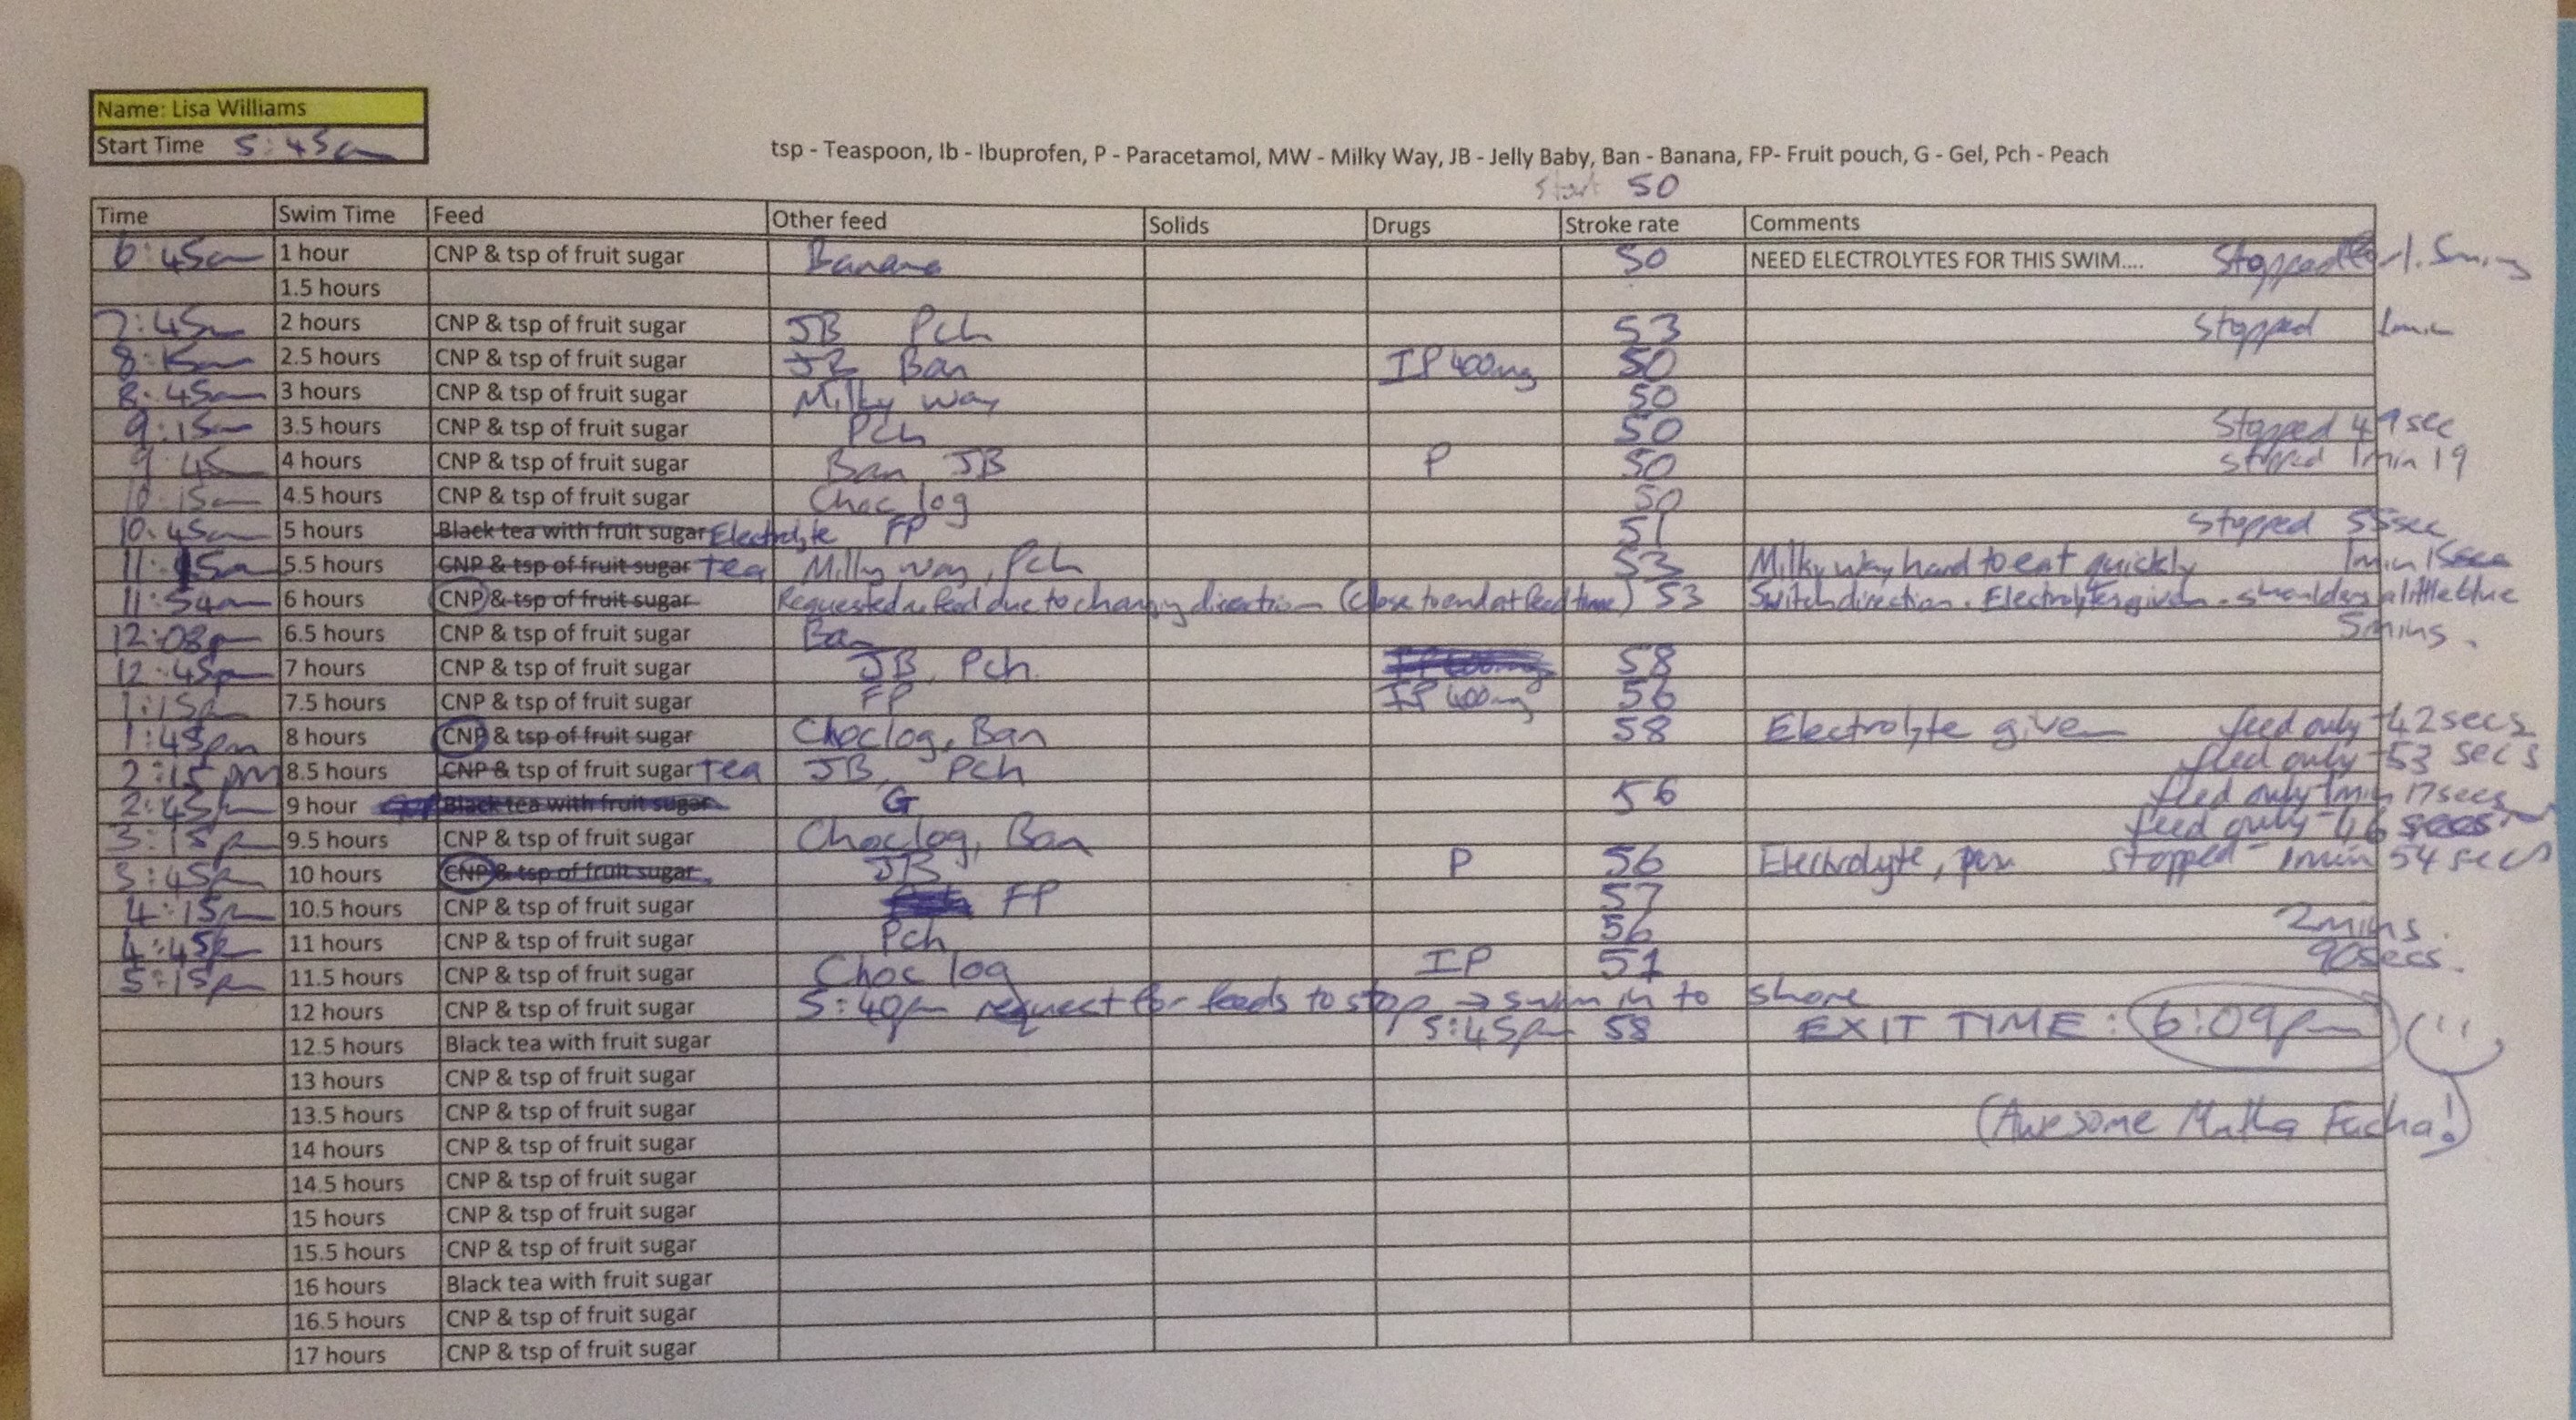 Name: Lisa Williams
Start Time 5:45am
tsp - Teaspoon, Ib - Ibuprofen, P - Paracetamol, MW - Milky Way, JB - Jelly Baby, Ban - Banana, FP- Fruit pouch, G - Gel, Pch - Peach
Start 50
Time Swim Time Feed Other feed Solids Drugs Stroke rate Comments
6:45am 1 hour CNP & tsp of fruit sugar Banana 50 NEED ELECTROLYTES FOR THIS SWIM.... Stopped for 1.5mins
1.5 hours
7:45am 2 hours CNP & tsp of fruit sugar JB Pch 53 Stopped 1min
8:15am 2.5 hours CNP & tsp of fruit sugar JB Ban IP 400mg 50
8:45am 3 hours CNP & tsp of fruit sugar Milky Way 50
9:15am 3.5 hours CNP & tsp of fruit sugar Pch 50 Stopped 49sec
9:45 4 hours CNP & tsp of fruit sugar Ban JB P 50 stopped 1min 19
10:15am 4.5 hours CNP & tsp of fruit sugar Choc log 50
10:45am 5 hours Black tea with fruit sugar Electrolyte FP 51 Stopped 55sec
11:15am 5.5 hours CNP & tsp of fruit sugar tea Milky way, Pch 53 Milky way hard to eat quickly 1min 15sec
11:54am 6 hours CNP & tsp of fruit sugar Requested no feed due to changing direction (close to end at feed time) 53 Switch direction. Electrolytes given. shoulders a little blue
12:08pm 6.5 hours CNP & tsp of fruit sugar Ban 5mins.
12:45pm 7 hours CNP & tsp of fruit sugar JB, Pch 58
1:15pm 7.5 hours CNP & tsp of fruit sugar FP IP 400mg 56
1:45pm 8 hours CNP & tsp of fruit sugar Choclog, Ban 58 Electrolyte given feed only - 42secs
2:15pm 8.5 hours CNP & tsp of fruit sugar tea JB, Pch feed only - 53 secs
2:45pm 9 hour Black tea with fruit sugar G 56 feed only 1min 17secs
3:15pm 9.5 hours CNP & tsp of fruit sugar Choclog, Ban feed only - 46 secs
3:45pm 10 hours CNP & tsp of fruit sugar JB P 56 Electrolyte, stopped - 1min 54 secs
4:15pm 10.5 hours CNP & tsp of fruit sugar FP 57
4:45pm 11 hours CNP & tsp of fruit sugar Pch 56 2mins.
5:15pm 11.5 hours CNP & tsp of fruit sugar Choc log IP 51 90secs.
12 hours CNP & tsp of fruit sugar 5:40pm request for feeds to stop → swim in to shore
12.5 hours Black tea with fruit sugar 5:45pm 58 EXIT TIME: 6:09pm
13 hours CNP & tsp of fruit sugar
13.5 hours CNP & tsp of fruit sugar (Awesome Mutha Fucha!)
14 hours CNP & tsp of fruit sugar
14.5 hours CNP & tsp of fruit sugar
15 hours CNP & tsp of fruit sugar
15.5 hours CNP & tsp of fruit sugar
16 hours Black tea with fruit sugar
16.5 hours CNP & tsp of fruit sugar
17 hours CNP & tsp of fruit sugar